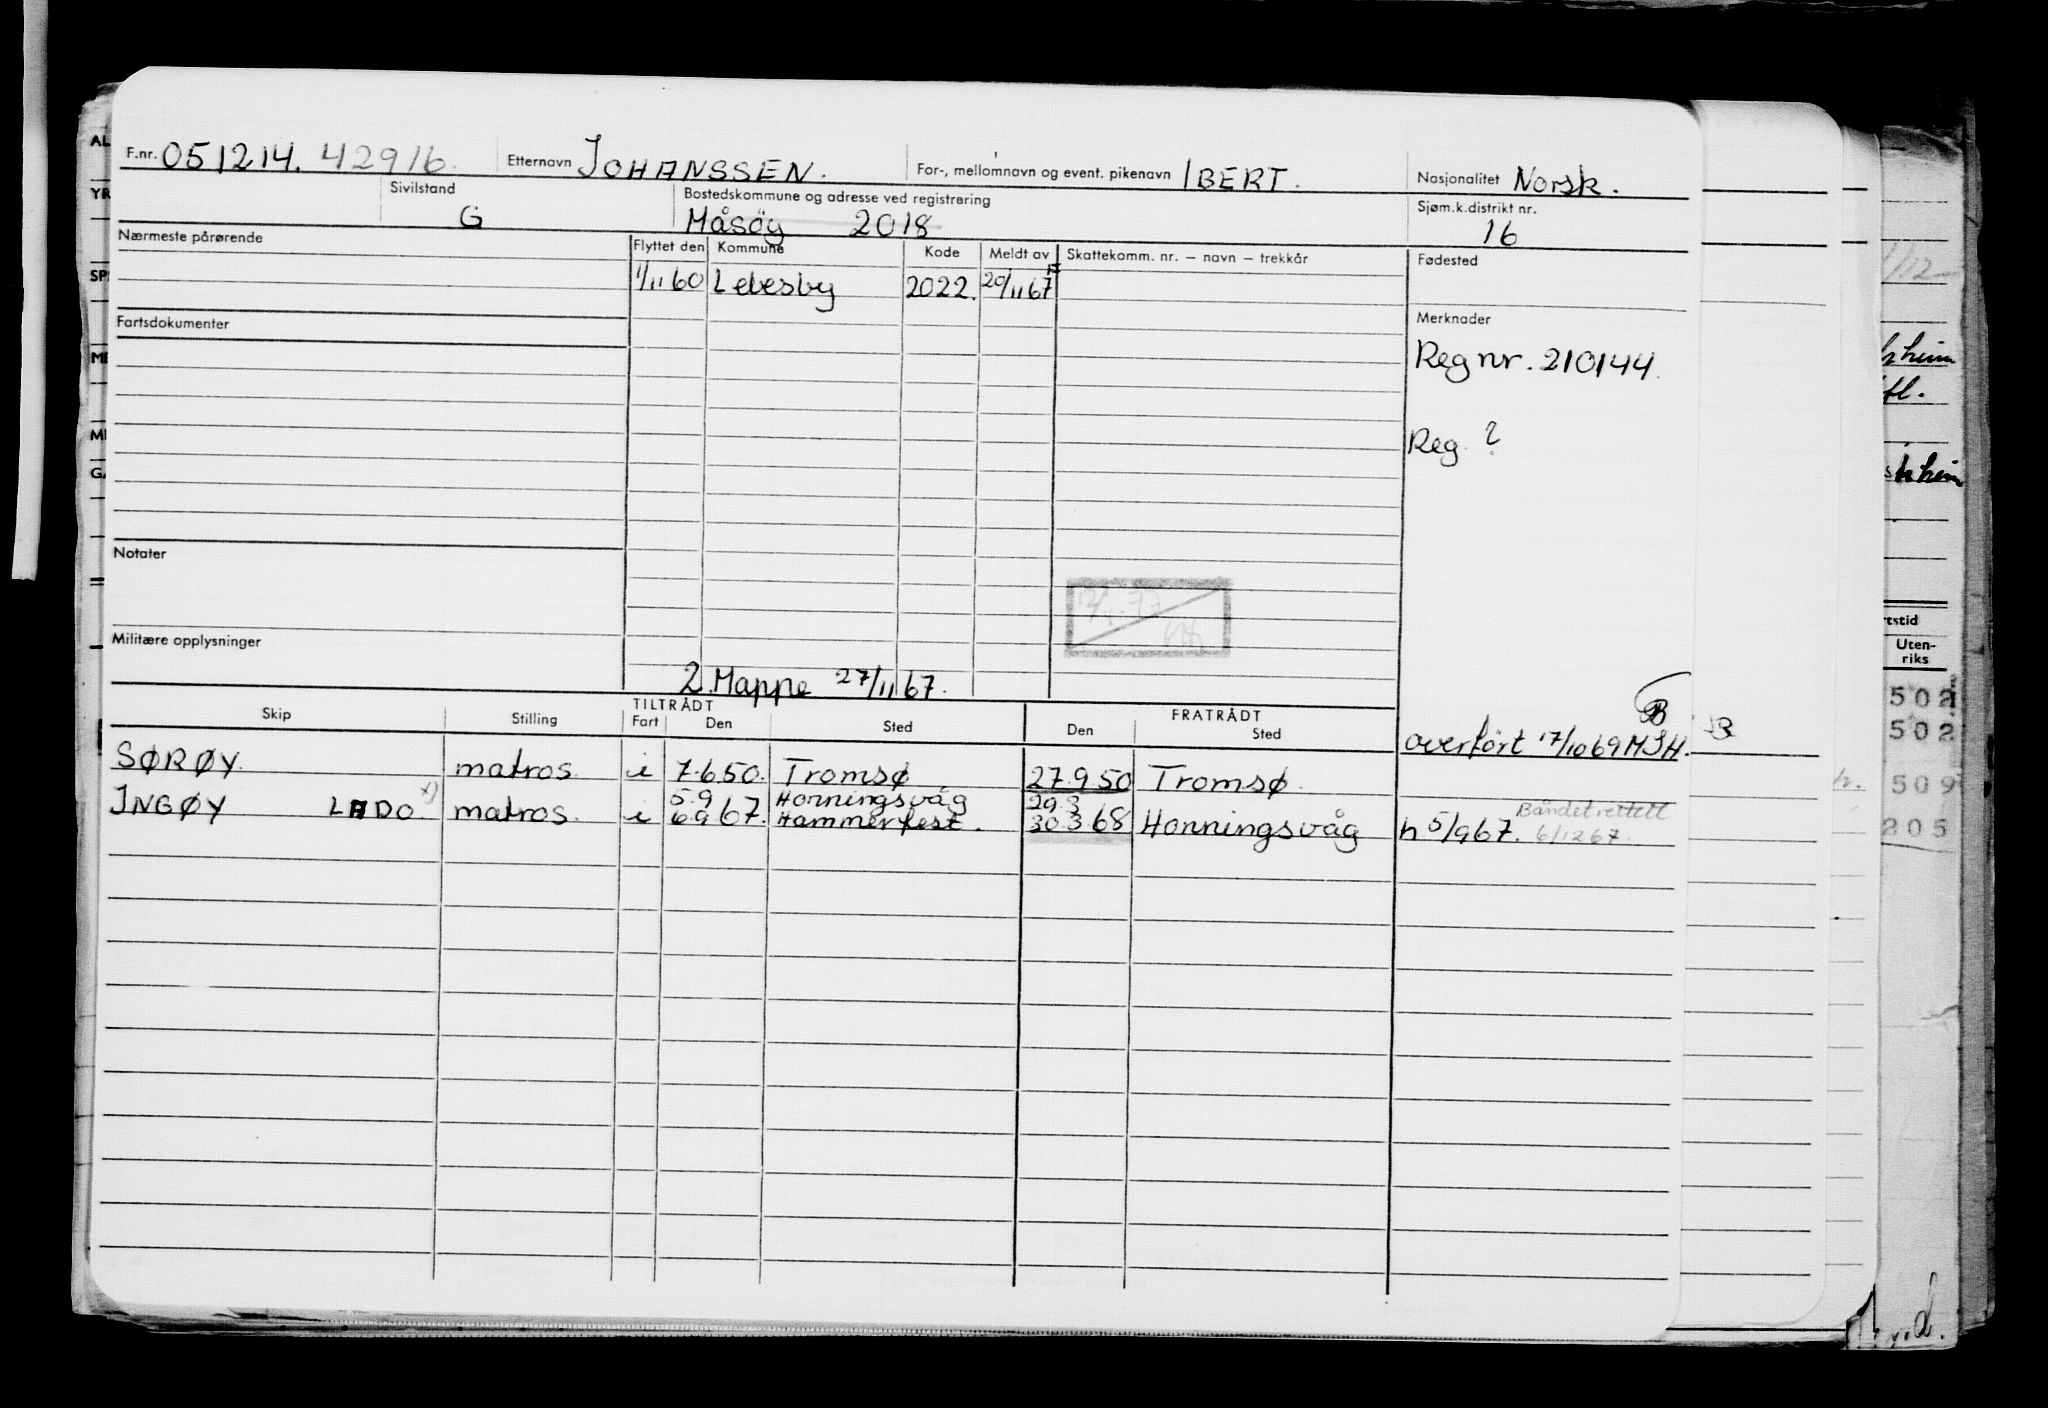 F.nr. 051214. 42916. Etternavn JOHANSSEN. For-, mellomnavn og event. pikenavn IBERT. Nasjonalitet Norsk.
Sivilstand G Bostedskommune og adresse ved registrering Måsöy 2018 Sjøm.k.distrikt nr. 16
Nærmeste pårørende Flyttet den Kommune Kode Meldt av Skattekomm. nr. – navn – trekkår Fødested
1/11 60 Lebesby 2022. 20/11 67
Fartsdokumenter Merknader
Reg nr. 210144.
Reg. ?
Notater
Militære opplysninger
2. Mappe 27/11 67.
TILTRÅDT FRATRÅDT
Skip Stilling Fart Den Sted Den Sted
overført 17/10 69 MSH.
SØRØY. matros. i 7.6.50. Tromsø 27.9.50 Tromsø.
5.9 Honningsvåg 29.3
INGØY LHDO. x) matros. i 6.9 67. Hammerfest. 30.3 68 Honningsvåg h 5/9 67. Båndet rettett 6/12 67.
AL
YR
SP
ME
MI
GA
/12
hheim
fl.
shheim
rtstid
Uten-
riks
502
502
509
205